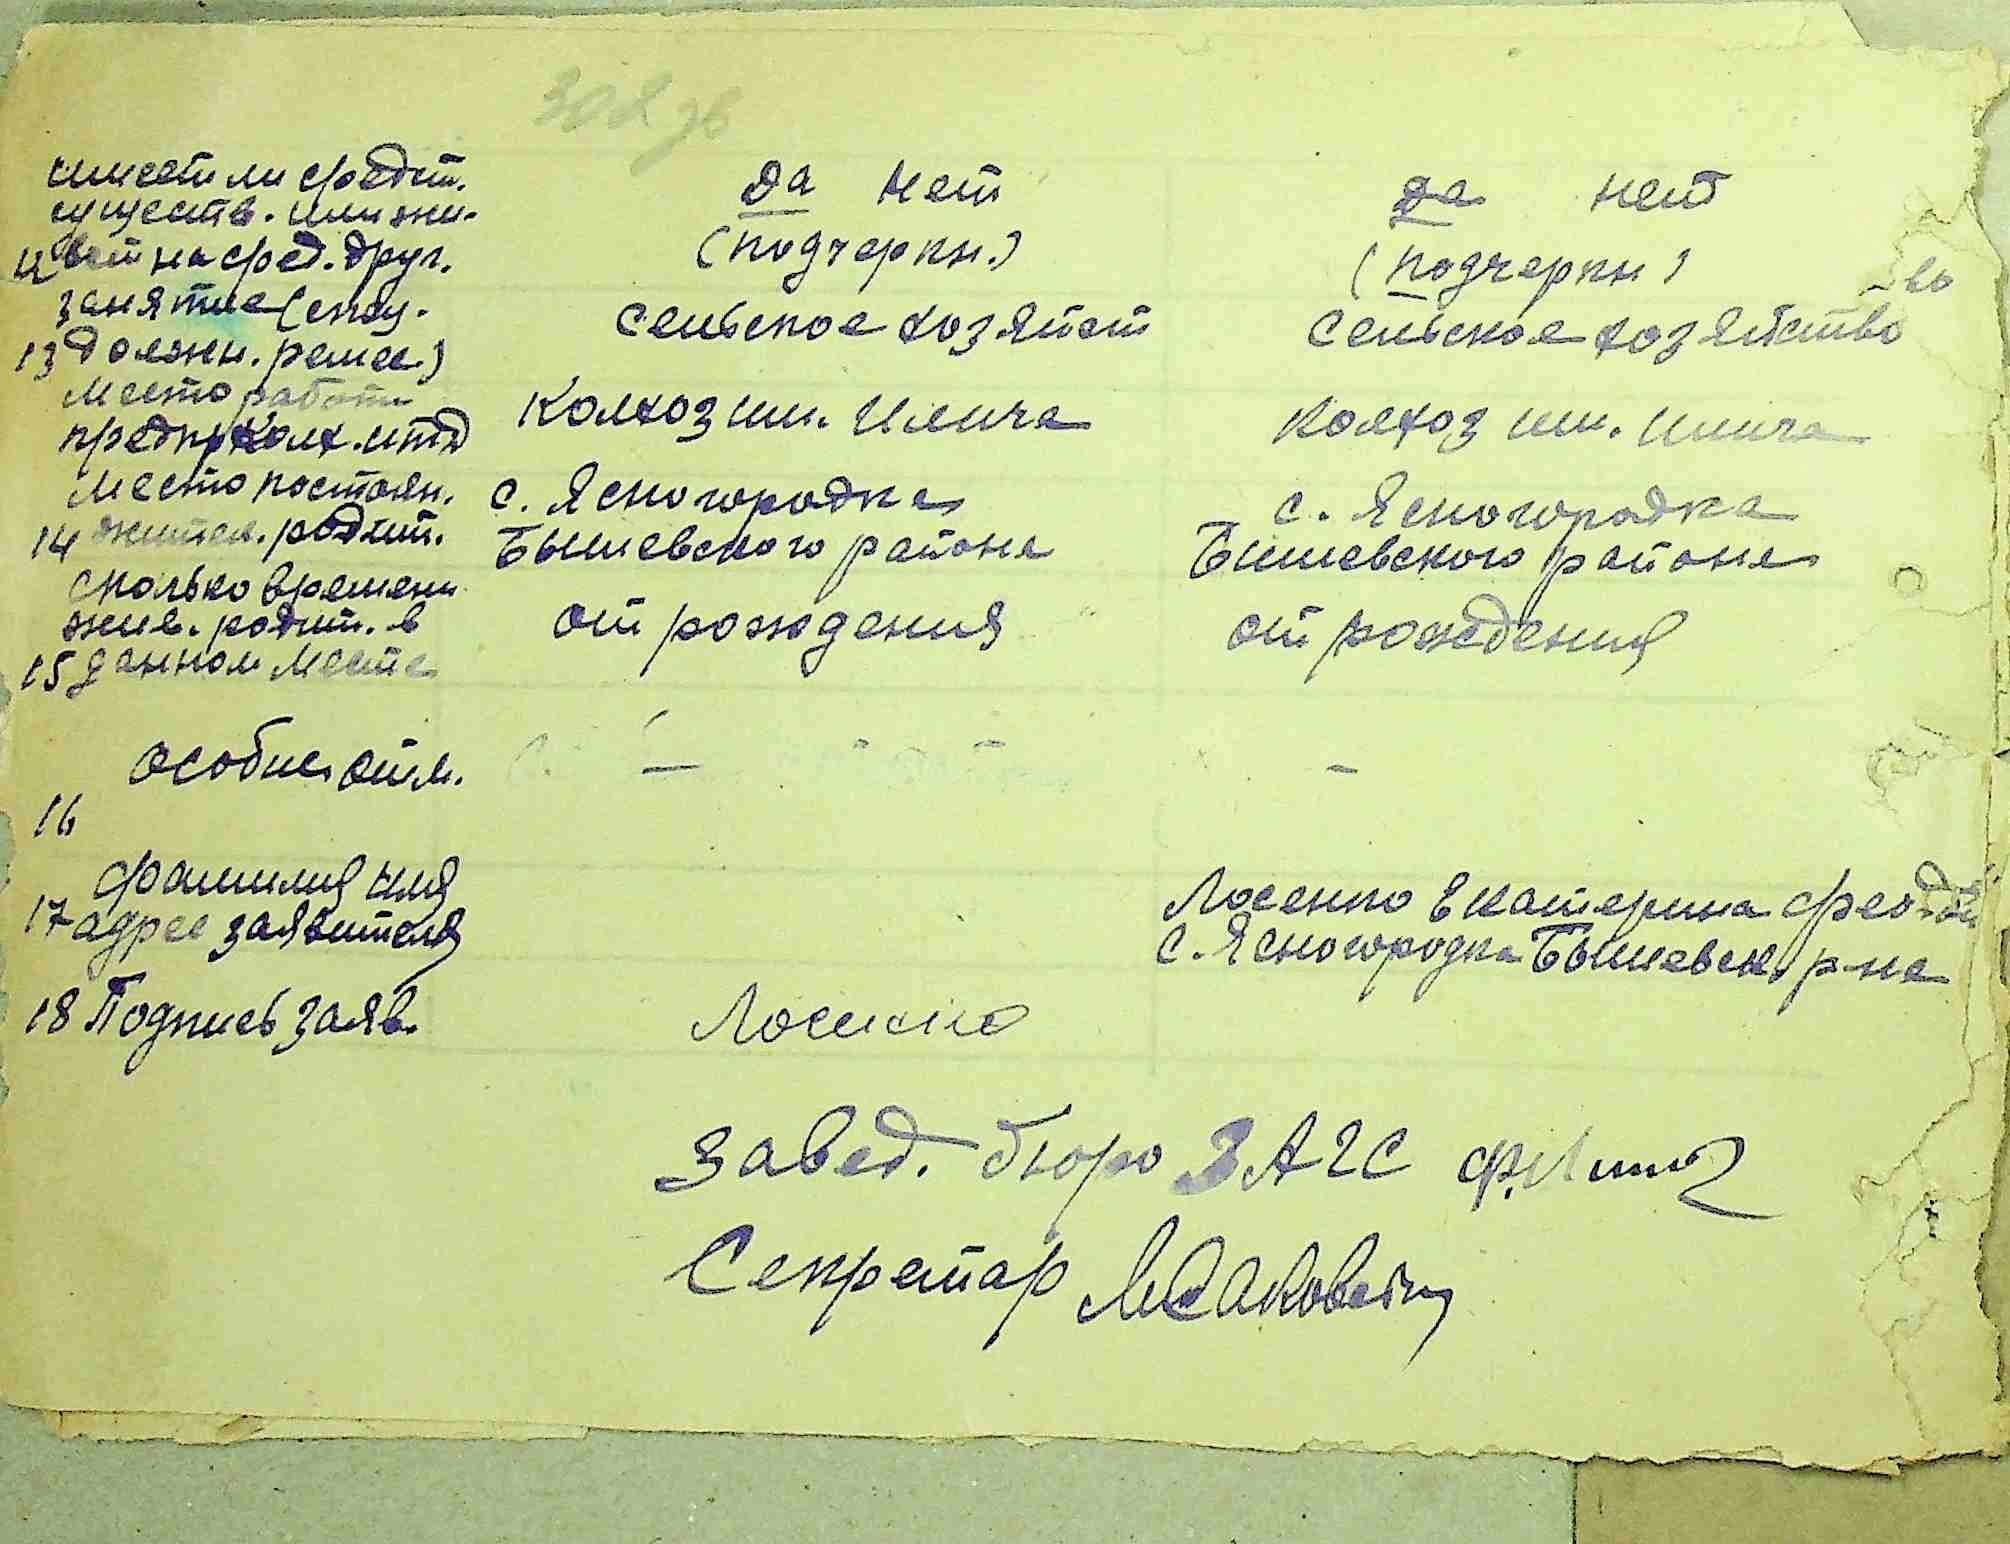 имеет ли средст.
существ. или жи-
12 вет на сред. друг.
да нет
да нет
(подчеркн.)
(подчеркн)
занятие (спец.
13 должн. ремес.)
сельское хозяйст
сельское хозяйство
во
место работы
предпр. колх. итд
колхоз им. Илича
колхоз им. Илича
место постоян.
14 жител. родит.
с. Ясногородка
Бышевского района
с. Ясногородка
Бышевского района
сколько времени
жив. родит. в
15 данном месте
от рождения
от рождения
16 особые отм.
—
-
фамилия имя
17 адрес заявителя
Лосенко Екатерина
с. Ясногородка Бышевск. р-на
18 Подпись заяв.
Лосенко
Завед. бюро ЗАГС
Секретар